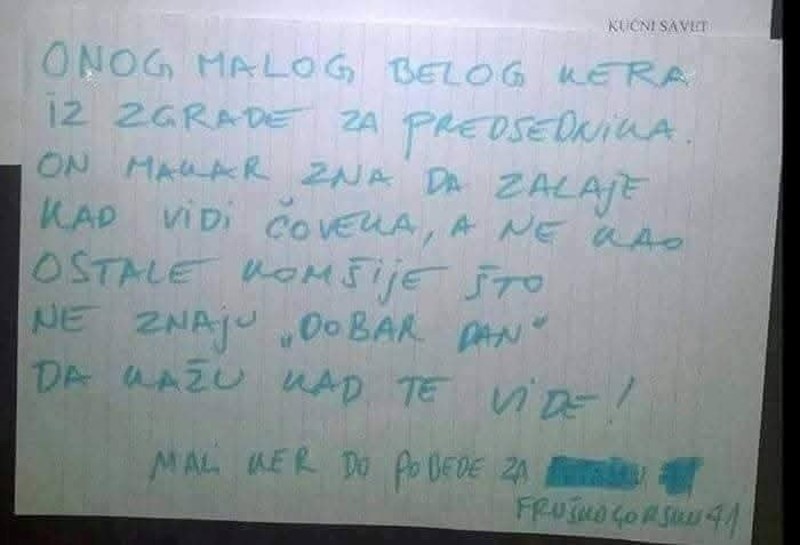 KUĆNI SAVET
ONOG MALOG BELOG KERA
IZ ZGRADE ZA PREDSEDNIKA.
ON MAKAR ZNA DA ZALAJE
KAD VIDI ČOVEKA, A NE KAO
OSTALE KOMŠIJE ŠTO
NE ZNAJU „DOBAR DAN"
DA KAŽU KAD TE VIDE!
MALI KER DO POBEDE ZA
FRUŠKOGORSKU 41